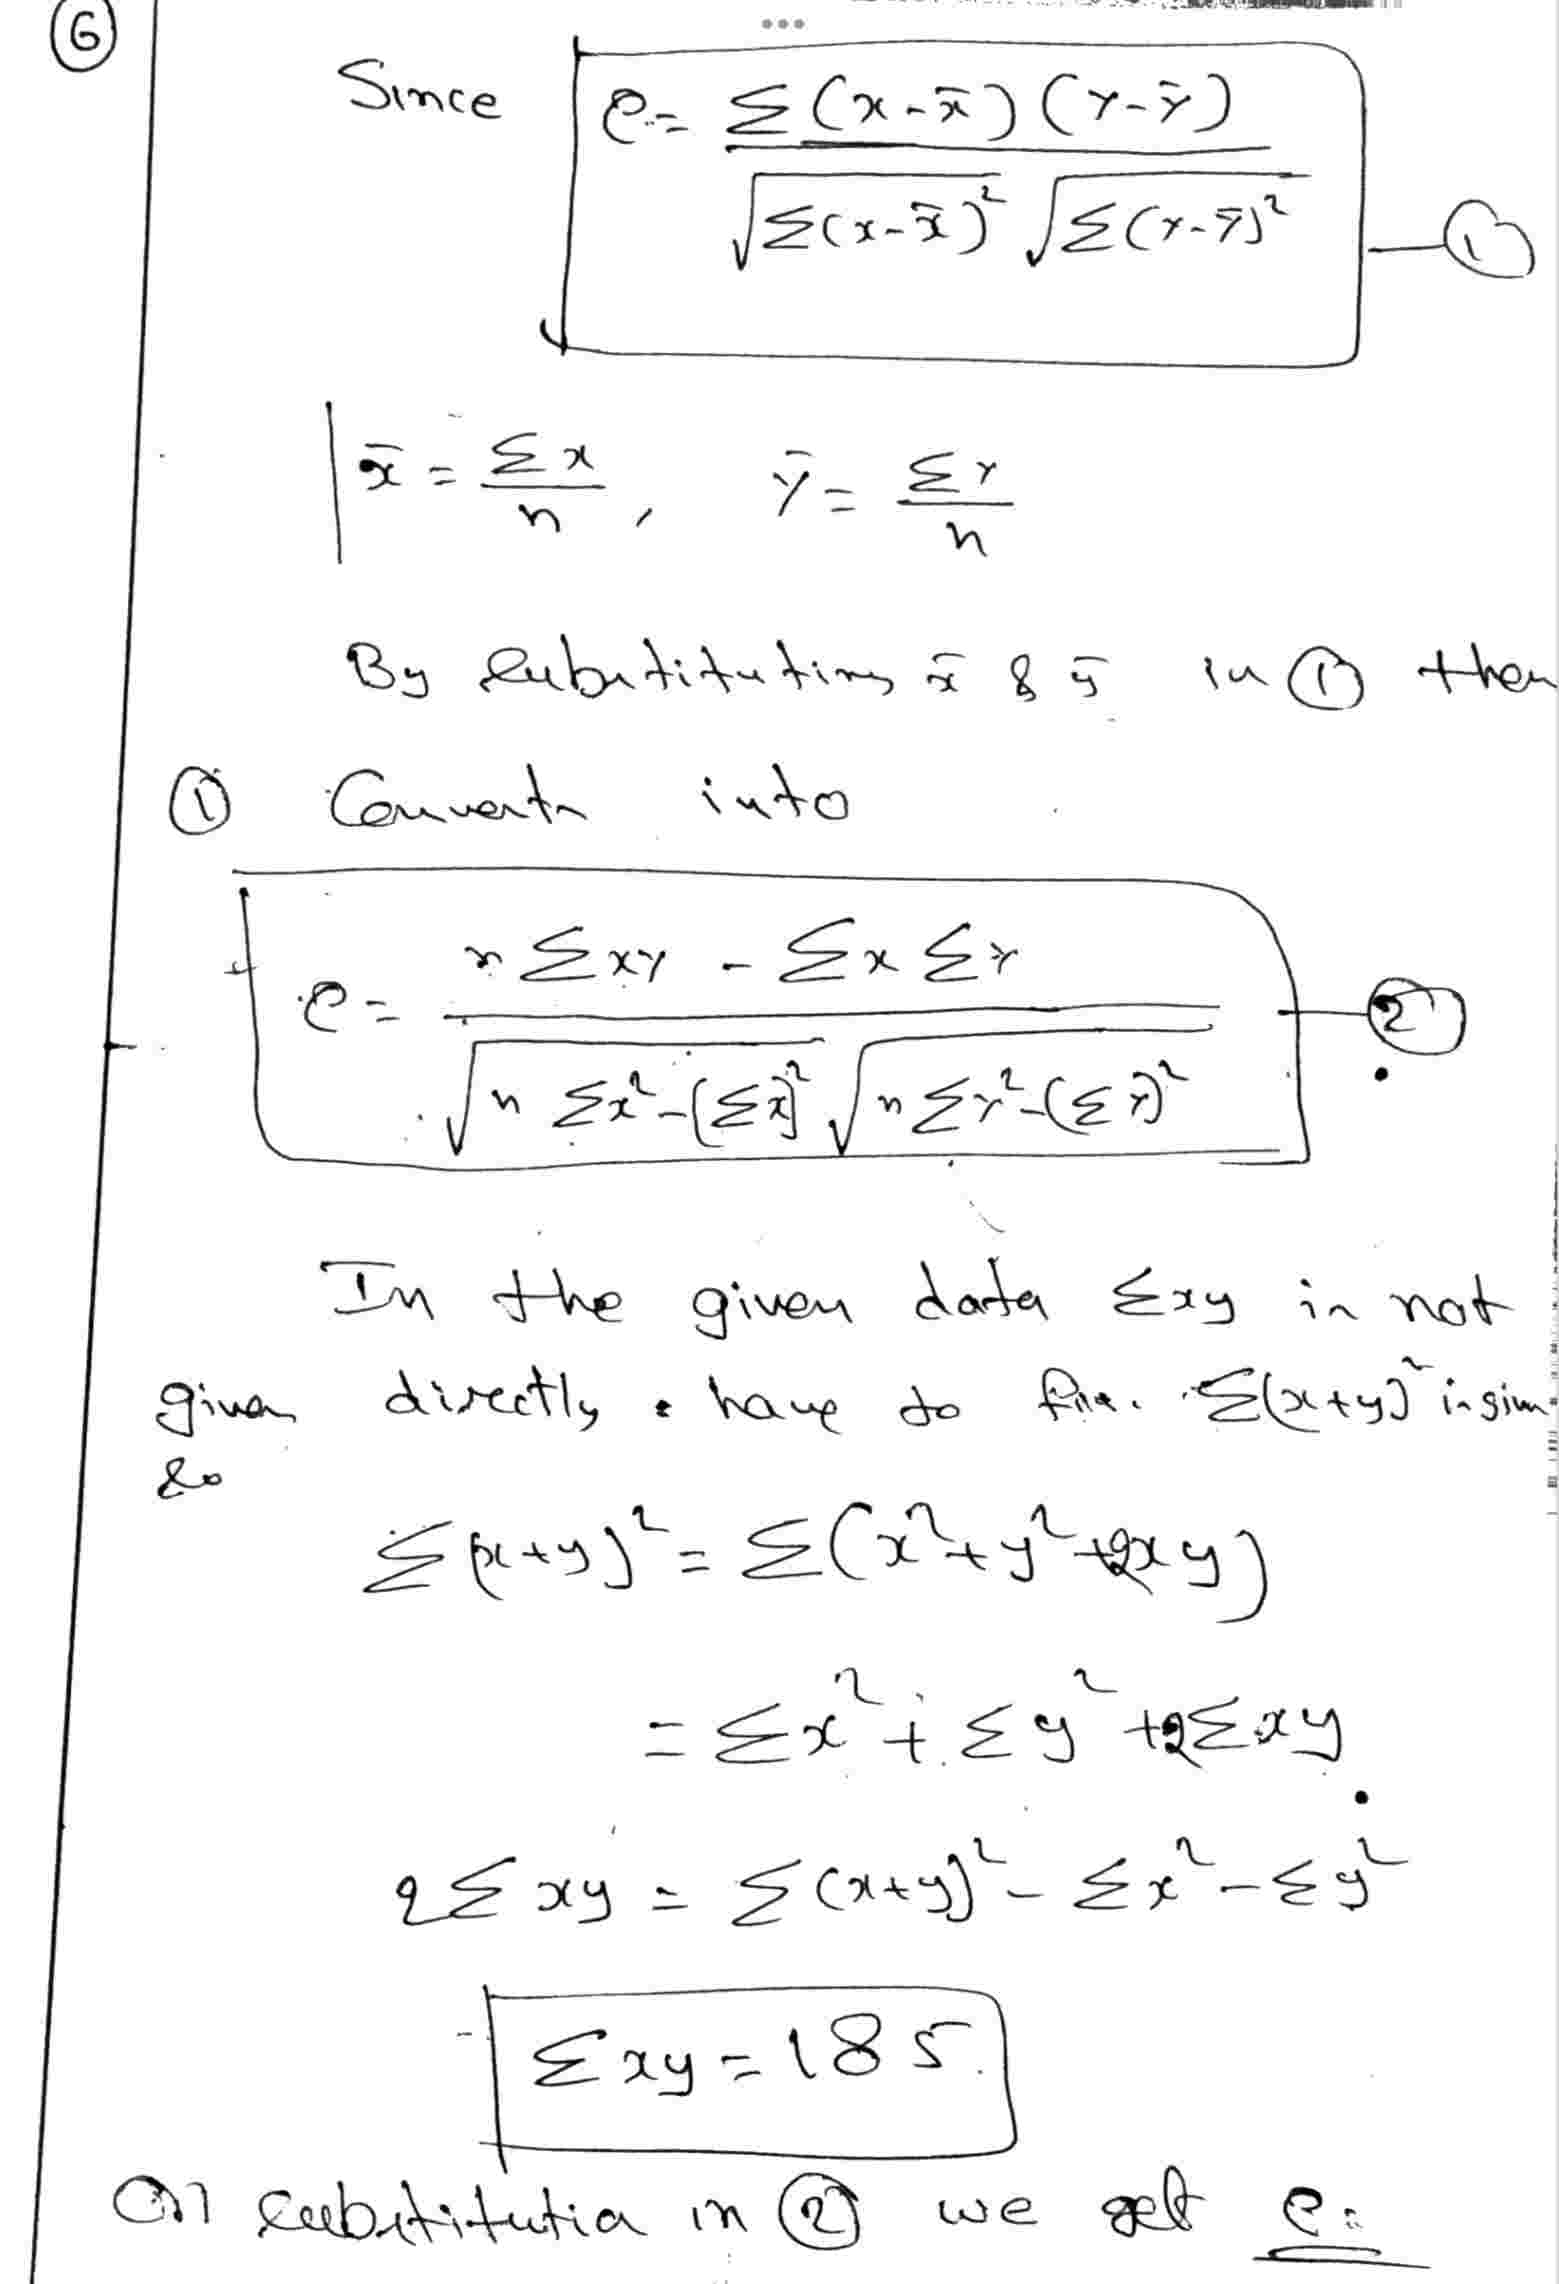 6
Since ρ = Σ(x-x̄)(Y-Ȳ) / √Σ(x-x̄)² √Σ(Y-Ȳ)² — 1
x̄ = Σx/n , Ȳ = ΣY/n
By substituting x̄ & ȳ in 1 then
1 Converts into
ρ = nΣXY - ΣxΣY / √nΣx²-(Σx)² √nΣY²-(ΣY)² — 2
In the given data Σxy is not
given directly. have to Σ(x+y)² is
so
Σ(x+y)² = Σ(x²+y²+2xy)
= Σx² + Σy² +2Σxy
2Σxy = Σ(x+y)² - Σx² - Σy²
Σxy = 185.
On substitution in 2 we get ρ =